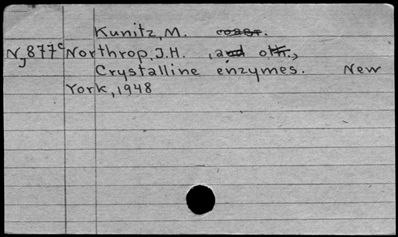 Kunitz, M. coaut.
NJ877c Northrop, J.H. , and oth.,
Crystalline enzymes. New
York, 1948